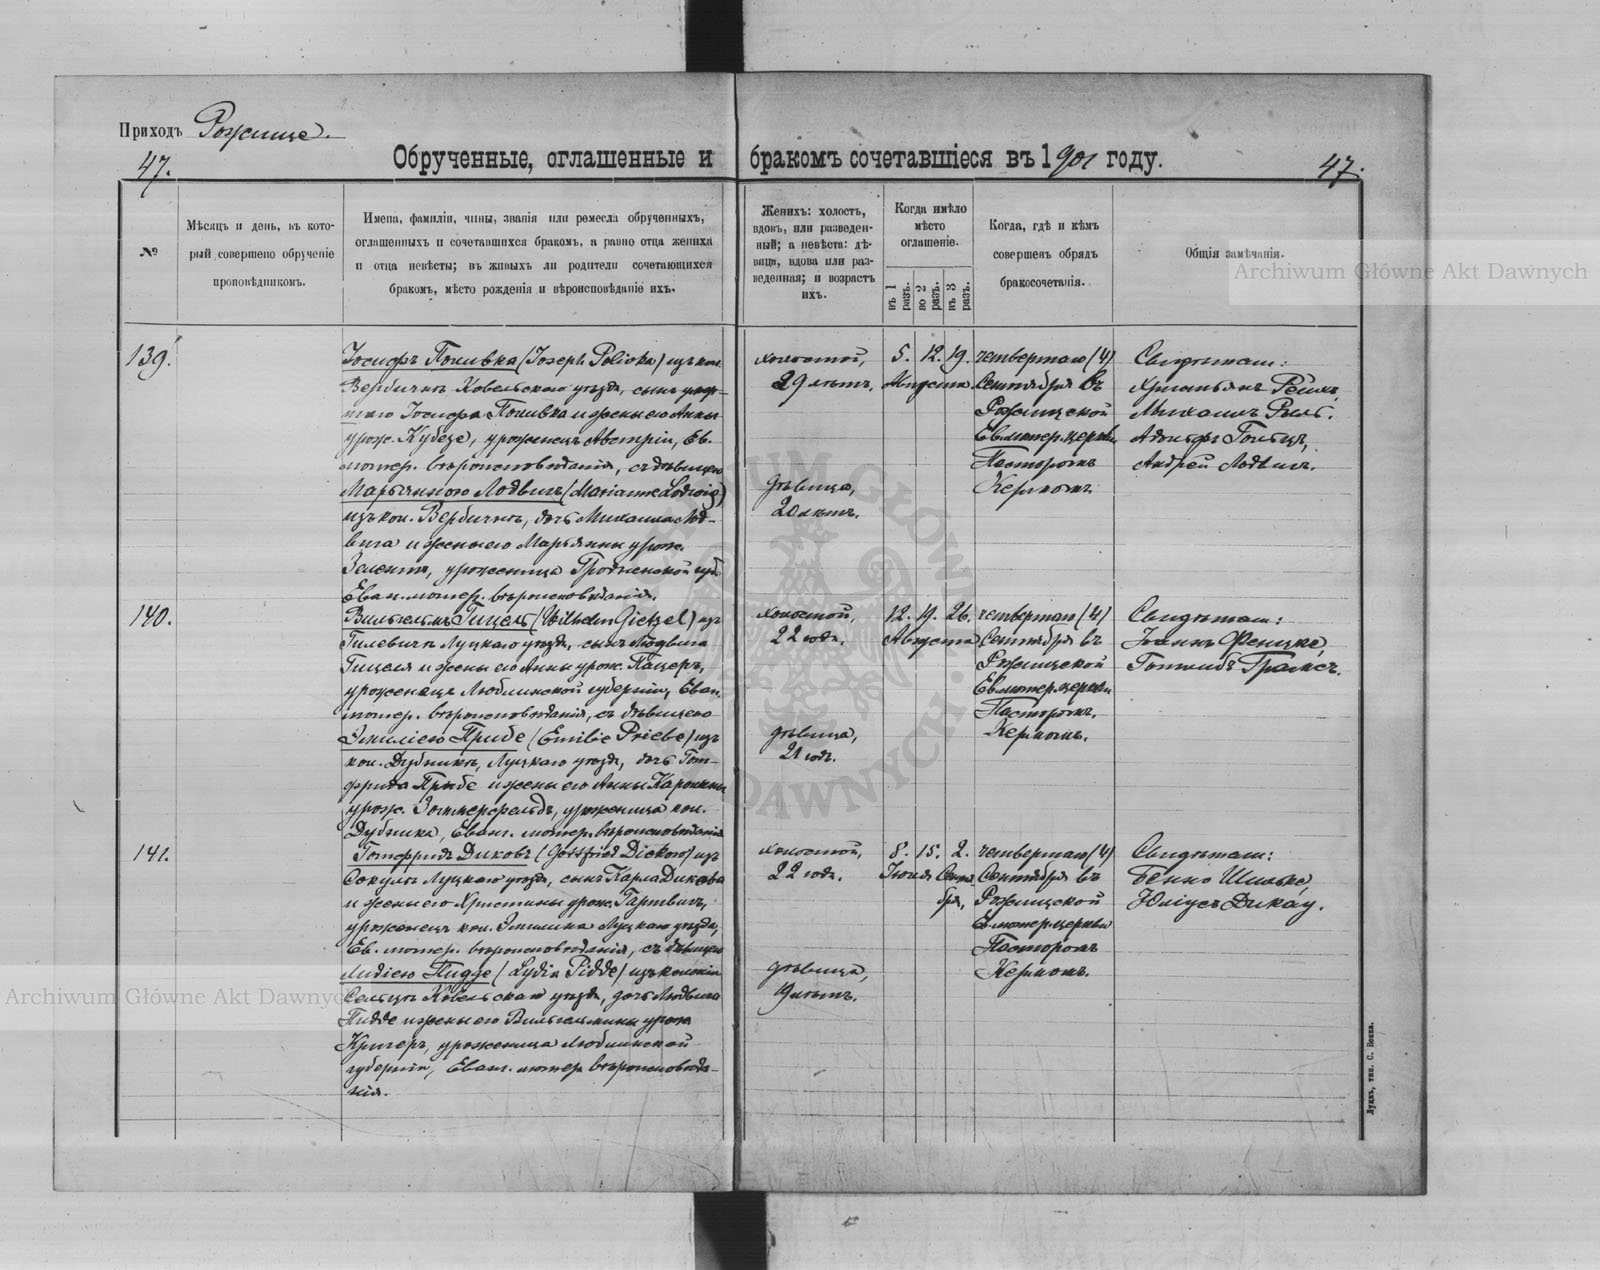 Приходъ Рожище.
47.
Обрученные, оглашенные и бракомъ сочетавшіеся въ 1901 году.
47.
№
Мѣсяцъ и день, въ кото-
рый совершено обрученіе
проповѣдникомъ.
Имена, фамиліи, чины, званія или ремесла обрученныхъ,
оглашенныхъ и сочетавшихся бракомъ, а равно отца жениха
и отца невѣсты; въ живыхъ ли родители сочетающихся
бракомъ, мѣсто рожденія и вѣроисповѣданіе ихъ.
Женихъ: холостъ,
вдовъ, или разведен-
ный; а невѣста: дѣ-
вица, вдова или раз-
веденная; и возрастъ
ихъ.
Когда имѣло
мѣсто
оглашеніе.
въ 1 разъ.
во 2 разъ.
въ 3 разъ.
Когда, гдѣ и кѣмъ
совершенъ обрядъ
бракосочетанія.
Общія замѣчанія.
Archiwum Główne Akt Dawnych
139.
Іосифъ Поливка (Joseph Polivka) изъ кол.
Вербичнъ Ковельскаго уѣзда, сынъ умер-
шаго Іосифа Поливка и жены его Анны
урож. Кубеце, уроженецъ Австріи, Ев.
лютер. вѣроисповѣданія, съ дѣвицею
Марьянною Лодвигъ (Marianne Lodwig)
изъ кол. Вербичнъ, дочь Михаила Лод-
вига и жены его Марьянны урож.
Зелентъ, уроженица Гродненской губ.
Еван. лютер. вѣроисповѣданія.
холостой,
29 лѣтъ.
дѣвица,
20 лѣтъ.
5. 12. 19.
Августа
четвертаго (4)
Сентября въ
Рожищской
Ев. лютер. церкви
Пасторомъ
Керномъ
Свидѣтели:
Христьянъ Рейхъ,
Михаилъ Рилъ.
Адольфъ Гольцъ,
Андрей Лодвигъ.
140.
Вильгельмъ Гицель (Wilhelm Gietzel) изъ
Гилевичъ Луцкаго уѣзда, сынъ Людвига
Гицеля и жены его Анны урож. Пацеръ,
уроженецъ Люблинской губерніи, Еван.
лютер. вѣроисповѣданія, съ дѣвицею
Эмиліею Прибе (Emilie Priebe) изъ
кол. Дубникъ, Луцкаго уѣзда, дочь Гот-
фрида Прибе и жены его Анны Каролины
урож. Зоммерфельдъ, уроженица кол.
Дубника, Еванг. лютер. вѣроисповѣданія
холостой,
22 года.
дѣвица,
21 годъ.
12. 19. 26.
Августа
четвертаго (4)
Сентября въ
Рожищской
Ев. лютер. церкви
Пасторомъ.
Керномъ.
Свидѣтели:
Іоаннъ Феницке,
Готлибъ Грамсъ.
141.
Готфридъ Диковъ (Gottfried Dickow) изъ
Сокулъ Луцкаго уѣзда, сынъ Карла Дикова
и жены его Христины урож. Гартвигъ,
уроженецъ кол. Эмилина Луцкаго уѣзда,
Ев. лютер. вѣроисповѣданія, съ дѣвицею
Лидіею Пидде (Lydia Pidde) изъ колоніи
Сельцъ Ковельскаго уѣзда, дочь Людвига
Пидде и жены его Вильгельмины урож.
Кригеръ, уроженица Люблинской
губерніи, Еванг. лютер. вѣроисповѣда-
нія.
холостой,
22 года.
дѣвица,
19 лѣтъ.
8. 15. 2.
Іюля Сентя
бря,
четвертаго (4)
Сентября въ
Рожищской
Ев. лютер. церкви
Пасторомъ
Керномъ.
Свидѣтели:
Бенно Шильке,
Юліусъ Дикау.
Archiwum Główne Akt Dawnych
Луцкъ, тип. С. Бокка.